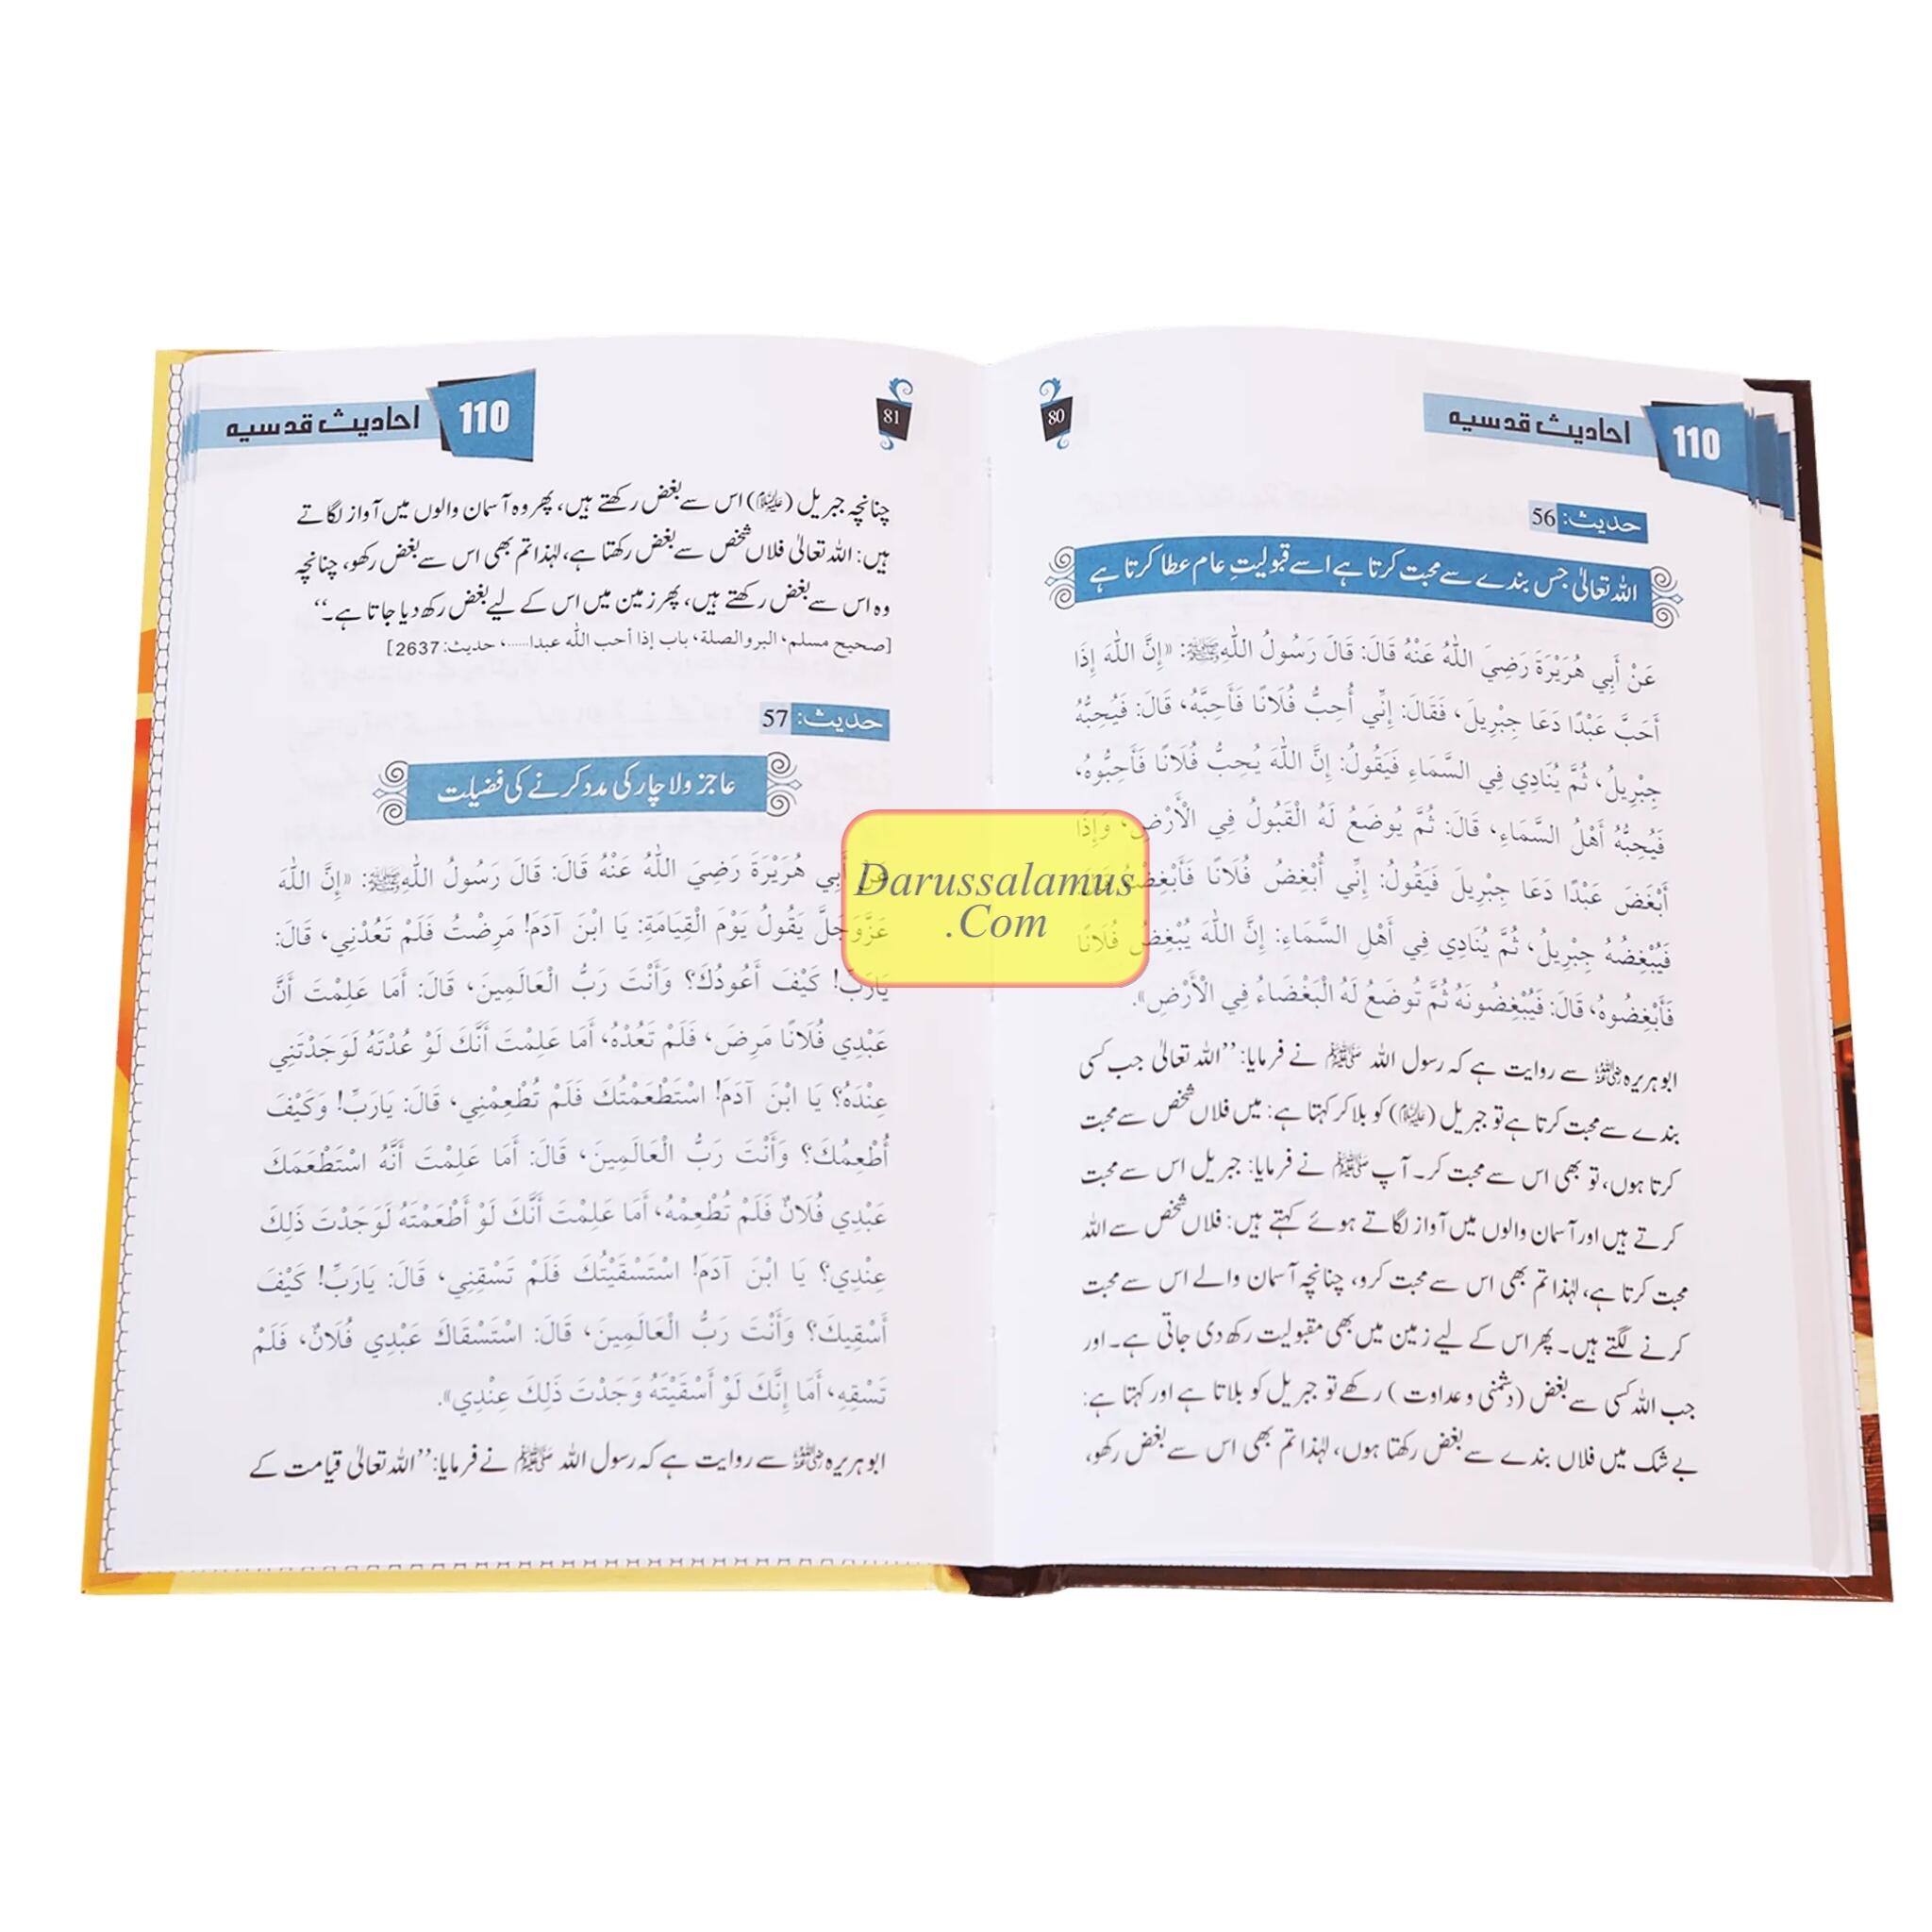 110 احادیث قدسیہ
80
حدیث: 56
اللہ تعالیٰ جس بندے سے محبت کرتا ہے اسے قبولیتِ عام عطا کرتا ہے
عَنْ أَبِي هُرَيْرَةَ رَضِيَ اللّٰهُ عَنْهُ قَالَ: قَالَ رَسُولُ اللّٰهِ ﷺ: «إِنَّ اللّٰهَ إِذَا
أَحَبَّ عَبْدًا دَعَا جِبْرِيلَ، فَقَالَ: إِنِّي أُحِبُّ فُلَانًا فَأَحِبَّهُ، قَالَ: فَيُحِبُّهُ
جِبْرِيلُ، ثُمَّ يُنَادِي فِي السَّمَاءِ فَيَقُولُ: إِنَّ اللّٰهَ يُحِبُّ فُلَانًا فَأَحِبُّوهُ،
فَيُحِبُّهُ أَهْلُ السَّمَاءِ، قَالَ: ثُمَّ يُوضَعُ لَهُ الْقَبُولُ فِي الْأَرْضِ، وَإِذَا
أَبْغَضَ عَبْدًا دَعَا جِبْرِيلَ فَيَقُولُ: إِنِّي أُبْغِضُ فُلَانًا فَأَبْغِضْهُ
فَيُبْغِضُهُ جِبْرِيلُ، ثُمَّ يُنَادِي فِي أَهْلِ السَّمَاءِ: إِنَّ اللّٰهَ يُبْغِضُ فُلَانًا
فَأَبْغِضُوهُ، قَالَ: فَيُبْغِضُونَهُ ثُمَّ تُوضَعُ لَهُ الْبَغْضَاءُ فِي الْأَرْضِ».
ابو ہریرہ رضی اللہ عنہ سے روایت ہے کہ رسول اللہ ﷺ نے فرمایا: ’’اللہ تعالیٰ جب کسی
بندے سے محبت کرتا ہے تو جبریل (علیہ السلام) کو بلا کر کہتا ہے: میں فلاں شخص سے محبت
کرتا ہوں، تو بھی اس سے محبت کر۔ آپ ﷺ نے فرمایا: جبریل اس سے محبت
کرتے ہیں اور آسمان والوں میں آواز لگاتے ہوئے کہتے ہیں: فلاں شخص سے اللہ
محبت کرتا ہے، لہٰذا تم بھی اس سے محبت کرو، چنانچہ آسمان والے اس سے محبت
کرنے لگتے ہیں۔ پھر اس کے لیے زمین میں بھی مقبولیت رکھ دی جاتی ہے۔ اور
جب اللہ کسی سے بغض (دشمنی و عداوت) رکھے تو جبریل کو بلاتا ہے اور کہتا ہے:
بے شک میں فلاں بندے سے بغض رکھتا ہوں، لہٰذا تم بھی اس سے بغض رکھو،
110 احادیث قدسیہ
81
چنانچہ جبریل (علیہ السلام) اس سے بغض رکھتے ہیں، پھر وہ آسمان والوں میں آواز لگاتے
ہیں: اللہ تعالیٰ فلاں شخص سے بغض رکھتا ہے، لہٰذا تم بھی اس سے بغض رکھو، چنانچہ
وہ اس سے بغض رکھتے ہیں، پھر زمین میں اس کے لیے بغض رکھ دیا جاتا ہے۔‘‘
[صحیح مسلم، البر والصلة، باب إذا أحب اللّٰه عبدا.....، حدیث: 2637]
حدیث: 57
عاجز و لاچار کی مدد کرنے کی فضیلت
عَنْ أَبِي هُرَيْرَةَ رَضِيَ اللّٰهُ عَنْهُ قَالَ: قَالَ رَسُولُ اللّٰهِ ﷺ: «إِنَّ اللّٰهَ
عَزَّوَجَلَّ يَقُولُ يَوْمَ الْقِيَامَةِ: يَا ابْنَ آدَمَ! مَرِضْتُ فَلَمْ تَعُدْنِي، قَالَ:
يَارَبِّ! كَيْفَ أَعُودُكَ؟ وَأَنْتَ رَبُّ الْعَالَمِينَ، قَالَ: أَمَا عَلِمْتَ أَنَّ
عَبْدِي فُلَانًا مَرِضَ، فَلَمْ تَعُدْهُ، أَمَا عَلِمْتَ أَنَّكَ لَوْ عُدْتَهُ لَوَجَدْتَنِي
عِنْدَهُ؟ يَا ابْنَ آدَمَ! اسْتَطْعَمْتُكَ فَلَمْ تُطْعِمْنِي، قَالَ: يَارَبِّ! وَكَيْفَ
أُطْعِمُكَ؟ وَأَنْتَ رَبُّ الْعَالَمِينَ، قَالَ: أَمَا عَلِمْتَ أَنَّهُ اسْتَطْعَمَكَ
عَبْدِي فُلَانٌ فَلَمْ تُطْعِمْهُ، أَمَا عَلِمْتَ أَنَّكَ لَوْ أَطْعَمْتَهُ لَوَجَدْتَ ذَلِكَ
عِنْدِي؟ يَا ابْنَ آدَمَ! اسْتَسْقَيْتُكَ فَلَمْ تَسْقِنِي، قَالَ: يَارَبِّ! كَيْفَ
أَسْقِيكَ؟ وَأَنْتَ رَبُّ الْعَالَمِينَ، قَالَ: اسْتَسْقَاكَ عَبْدِي فُلَانٌ، فَلَمْ
تَسْقِهِ، أَمَا إِنَّكَ لَوْ أَسْقَيْتَهُ وَجَدْتَ ذَلِكَ عِنْدِي».
ابو ہریرہ رضی اللہ عنہ سے روایت ہے کہ رسول اللہ ﷺ نے فرمایا: ’’اللہ تعالیٰ قیامت کے
Darussalamus
.Com